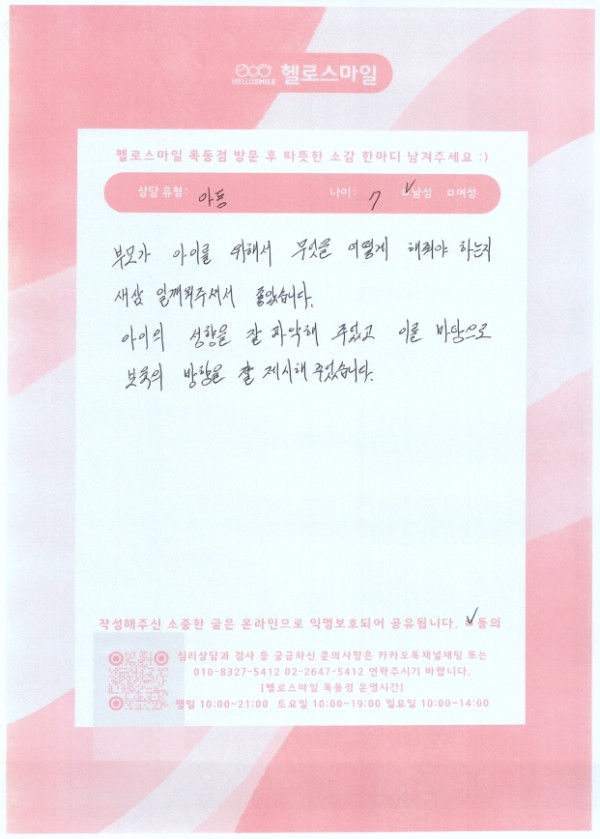 HELLOSMILE 헬로스마일
헬로스마일 목동점 방문 후 따뜻한 소감 한마디 남겨주세요 :)
상담 유형: 아동 나이: 7 ☑남성 □여성
부모가 아이를 위해서 무엇을 어떻게 해줘야 하는지
새삼 일깨워주셔서 좋았습니다.
아이의 성향을 잘 파악해 주었고 이를 바탕으로
보육의 방향을 잘 제시해 주었습니다.
작성해주신 소중한 글은 온라인으로 익명보호되어 공유됩니다. ☑동의
심리상담과 검사 등 궁금하신 문의사항은 카카오톡채널채팅 또는
010-8327-5412 02-2647-5412 연락주시기 바랍니다.
[헬로스마일 목동점 운영시간]
평일 10:00~21:00 토요일 10:00~19:00 일요일 10:00~14:00